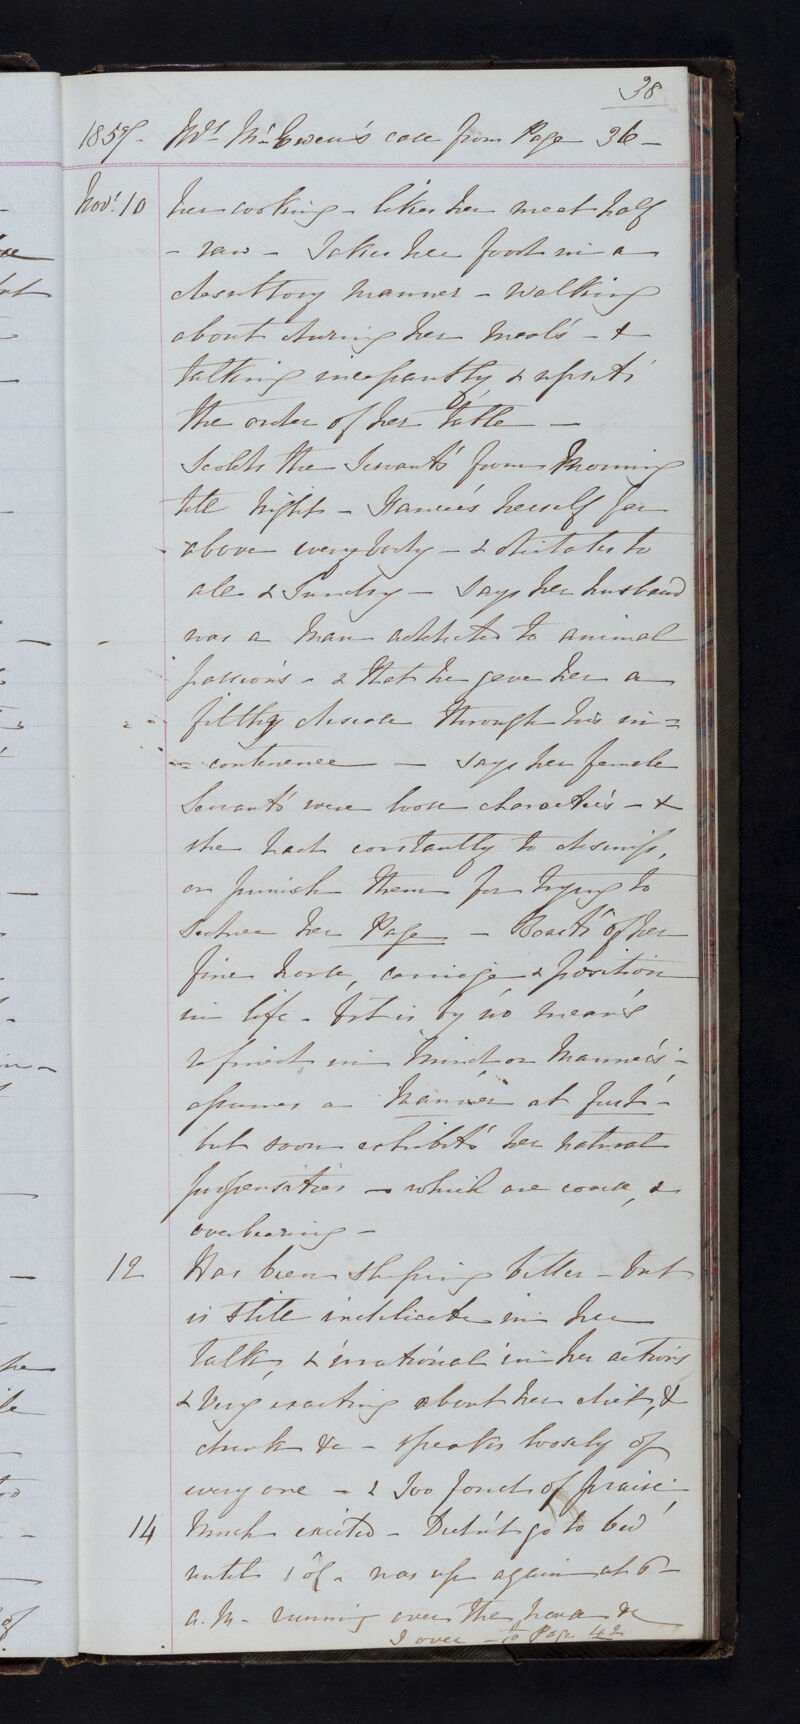 38
1857. Mrs McEwen's case from Page 36 -
Novr. 10 her cooking - likes her meat half
- raw - Takes her food in a
desultory manner - walking
about during her meals - &
talking incessantly & upsets
the order of her table -
Scolds the Servants from Morning
till Night - Fancies herself far
above everybody - & dictates to
all & Sundry - Says her husband
was a man addicted to animal
passions - & that he gave her a
filthy disease through his in=
= continence - says her female
Servants were loose characters - &
she had constantly to dismiss,
or punish them for trying to
seduce her Page - Boasts of her
fine horse, carriage & position
in life - but is by no means
refined in Mind or Manners -
assumes a Manner at first -
but soon exhibits her natural
propensities - which are coarse, &
overbearing -
12 Has been sleeping better - but
is still indelicate in her
talk, & irrational in her actions
& very exacting about her diet, &
drink &c - speaks loosely of
every one - & Too fond of praise -
14 Much excited - Didn't go to bed
until 1 o'c. was up again at 6
a.m - running over the house &c
over - to Page 42